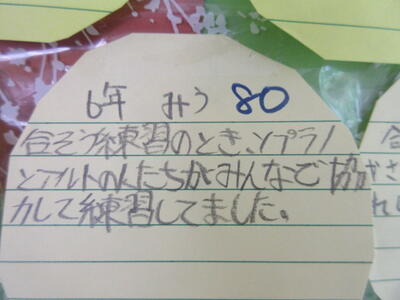 6年 みう 80
合そう練習のとき、ソプラノ
とアルトの人たちがみんなで協
力して練習してました。